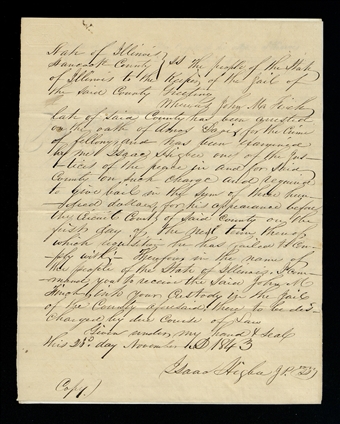 State of Illinois
Hancock County } SS The people of the State
of Illinois to the Keeper of the Jail of
the Said County Greeting
Whereas John M
late of Said County has been arrested
on the oath of Amos for the Crime
of felony, and has been Examined
by me Isaac Higbee one of the Jus-
tices of the peace in and for Said
County on Such Charge and required
to give bail in the Sum of three hun-
dred dollars, for his appearance before
the Circuit Court of Said County on the
first day of the next term thereof
which he has failed to Com-
ply with — Therefore in the name of
the people of the State of Illinois, I com-
mand you to receive the Said John M.
into your Custody in the Jail
of the County aforesaid there to be dis-
Charged by due Course of Law
Given under my hand & Seal
this day November AD 1843
Isaac Higbee J P
Copy)